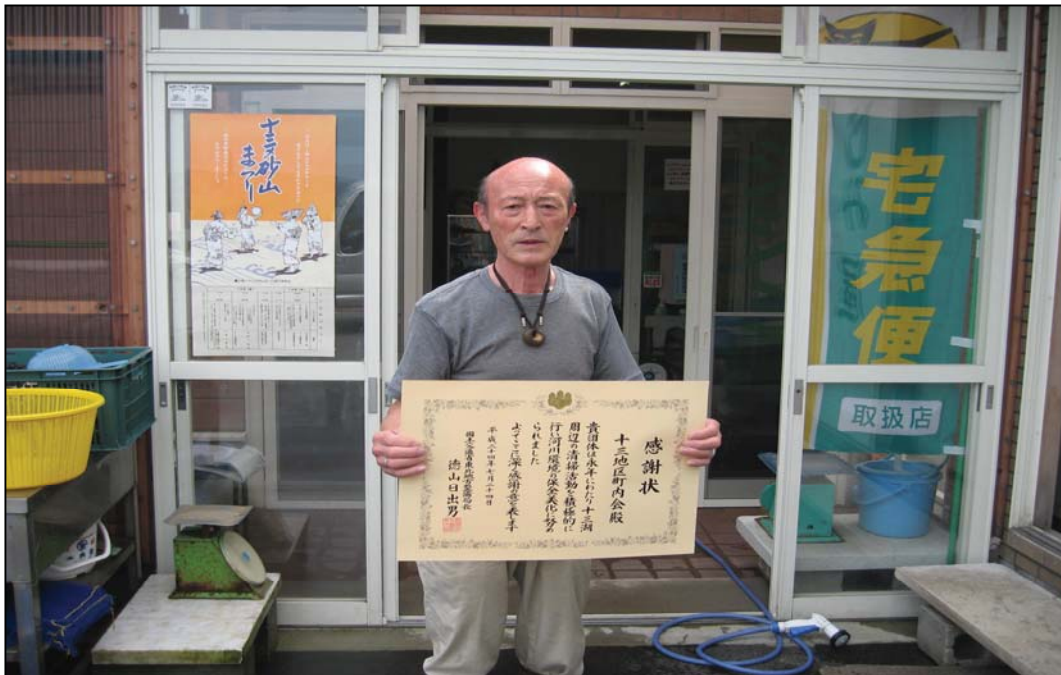 十三の砂山
まつり
宅急便
取扱店
感謝状
十三地区町内会殿
貴団体は永年にわたり十三湖
周辺の清掃活動を積極的に
行い河川環境の保全美化に努め
られました
よってここに深く感謝の意を表します
平成二十四年七月二十四日
国土交通省東北地方整備局長
徳山日出男